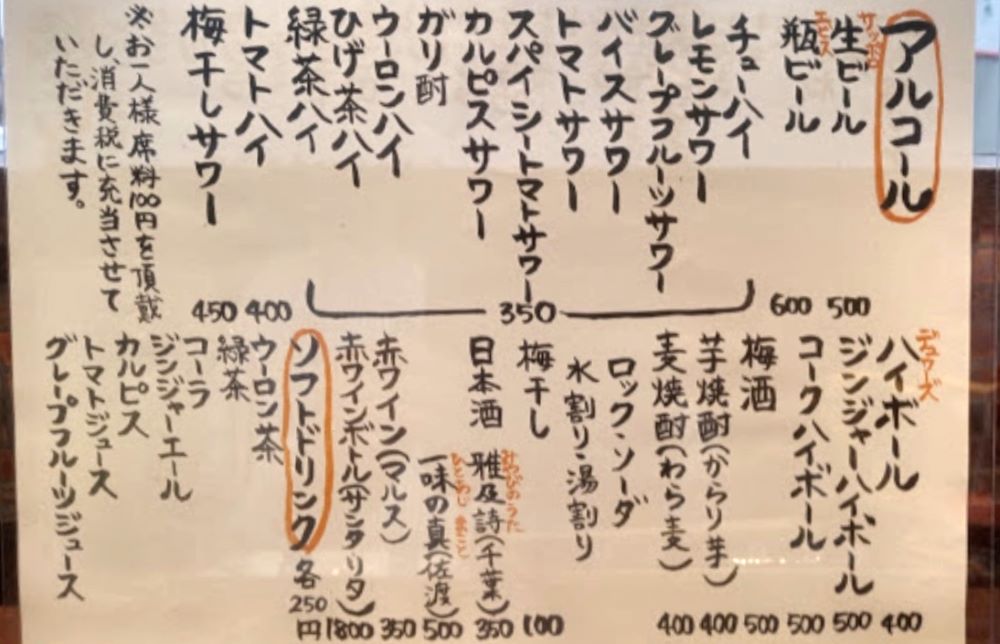 アルコール
サッポロ
生ビール 500
エビス
瓶ビール 600
チューハイ
レモンサワー
グレープフルーツサワー
バイスサワー
トマトサワー
スパイシートマトサワー
カルピスサワー
ガリ酎
ウーロンハイ
ひげ茶ハイ
緑茶ハイ
350
トマトハイ 400
梅干しサワー 450
※お一人様席料100円を頂戴
し、消費税に充当させて
いただきます。
デュワーズ
ハイボール 400
ジンジャーハイボール 500
コークハイボール 500
梅酒 500
芋焼酎(からり芋) 400
麦焼酎(わら麦) 400
ロック・ソーダ
水割り・湯割り
梅干し 100
みやびのうた
日本酒 雅及詩(千葉) 350
ひとあじ まこと
一味の真(佐渡) 500
赤ワイン(マルス) 350
赤ワインボトル(サンタリタ) 1800
ソフトドリンク 各250円
ウーロン茶
緑茶
コーラ
ジンジャーエール
カルピス
トマトジュース
グレープフルーツジュース